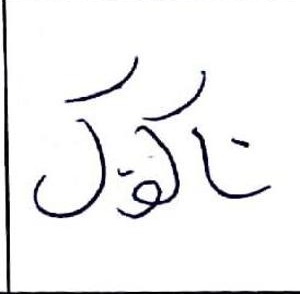 ناکوک